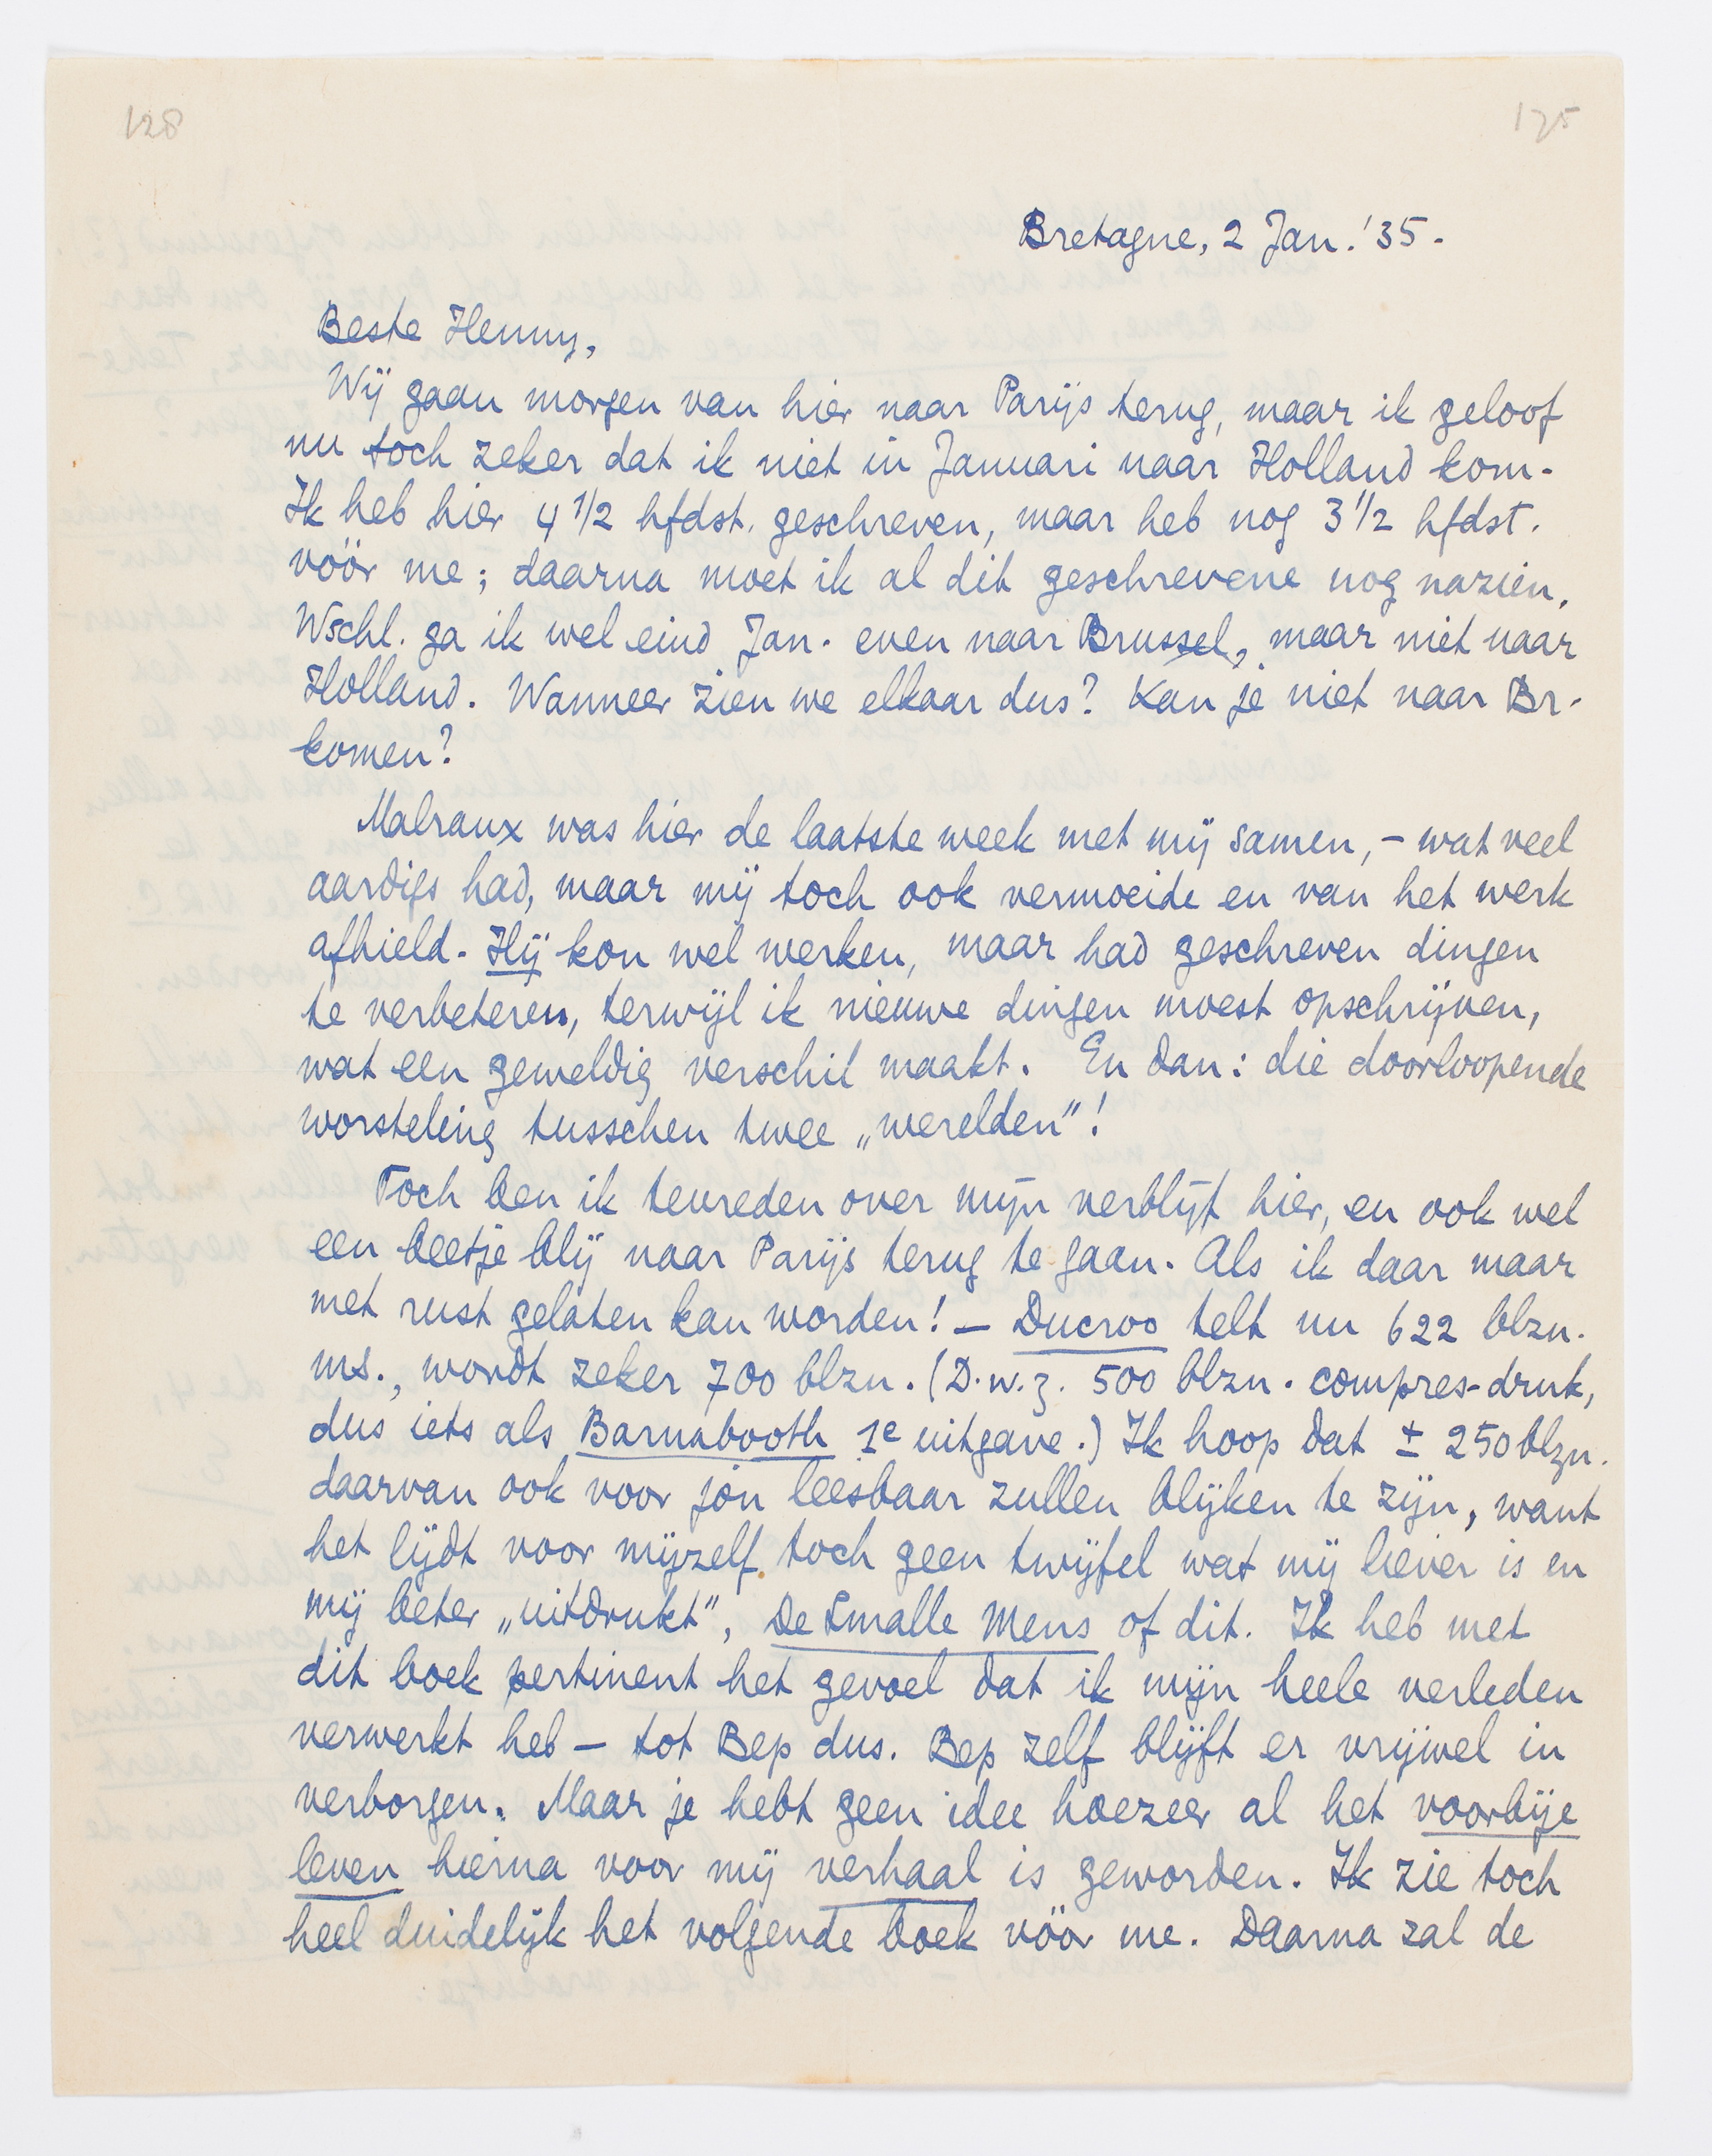 128
175
Bretagne, 2 Jan. '35.
Beste Henny,
Wij gaan morgen van hier naar Parijs terug, maar ik geloof
nu toch zeker dat ik niet in Januari naar Holland kom.
Ik heb hier 4 1/2 hfdst. geschreven, maar heb nog 3 1/2 hfdst.
vóór me; daarna moet ik al dit geschrevene nog nazien.
Wschl. ga ik wel eind Jan. even naar Brussel, maar niet naar
Holland. Wanneer zien we elkaar dus? Kan je niet naar Br.
komen?
Malraux was hier de laatste week met mij samen, – wat veel
aardigs had, maar mij toch ook vermoeide en van het werk
afhield. Hij kon wel werken, maar had geschreven dingen
te verbeteren, terwijl ik nieuwe dingen moest opschrijven,
wat een geweldig verschil maakt. En dan: die doorloopende
worsteling tusschen twee „werelden"!
Toch ben ik tevreden over mijn verblijf hier, en ook wel
een beetje blij naar Parijs terug te gaan. Als ik daar maar
met rust gelaten kan worden! – Ducroo telt nu 622 blzn.
ms., wordt zeker 700 blzn. (D.w.z. 500 blzn. compres-druk,
dus iets als Barnabooth 1e uitgave.) Ik hoop dat ± 250 blzn.
daarvan ook voor jou leesbaar zullen blijken te zijn, want
het lijdt voor mijzelf toch geen twijfel wat mij liever is en
mij beter „uitdrukt", De Smalle Mens of dit. Ik heb met
dit boek pertinent het gevoel dat ik mijn heele verleden
verwerkt heb – tot Bep dus. Bep zelf blijft er vrijwel in
verborgen. Maar je hebt geen idee hoezeer al het voorbije
leven hierna voor mij verhaal is geworden. Ik zie toch
heel duidelijk het volgende boek vóór me. Daarna zal de